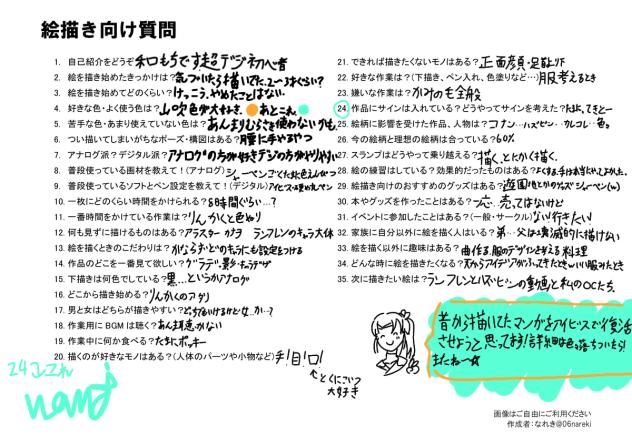 絵描き向け質問
1. 自己紹介をどうぞ 和もちです超デジ初心者
2. 絵を描き始めたきっかけは? 気づいたら描いてた、2〜3才ぐらい?
3. 絵を描き始めてどのくらい? けっこう、やめたことはない
4. 好きな色・よく使う色は? 山吹色が大すき、あとこれ
5. 苦手な色・あまり使いていない色は? あんまりむらさき使わないかも
6. つい描いてしまいがちなポーズ・構図はある? 腰に手やるやつ
7. アナログ派?デジタル派? アナログの方が好きデジの方がやりやすい
8. 普段使っている画材を教えて!(アナログ) シャーペンごくたまに色えんぴつ
9. 普段使っているソフトとペン設定を教えて!(デジタル) アイビス
10. 一枚にどのくらい時間をかけられる? 8時間ぐらい…?
11. 一番時間をかけている作業は? りんかくと色ぬり
12. 何も見ずに描けるものはある? アラスター カナヲ ランフレンのキャラ大体
13. 絵を描くときのこだわりは?
14. 作品のどこを一番見て欲しい? グラデ・影
15. 下描きは何色でしている? 黒…というかアナログ
16. どこから描き始める? りんかくのアタリ
17. 男と女はどちらが描きやすい?
18. 作業用にBGMは聴く? あんま意識ない
19. 作業中に何か食べる? たまにポッキー
20. 描くのが好きなモノはある?(人体のパーツや小物など) 手!目!口!
↑とくにこいつ
大好き
21. できれば描きたくないモノはある? 正面の顔・足
22. 好きな作業は?(下描き、ペン入れ、色塗りなど…) 服考えるとき
23. 嫌いな作業は? かみのも全般
24. 作品にサインは入れている?どうやってサインを考えた? たまに、てきとー
25. 絵柄に影響を受けた作品、人物は? コナン、ハズビン、カレコレ
26. 今の絵柄と理想の絵柄は合っている? 60%
27. スランプはどうやって乗り越える? 描く、とにかく描く、
28. 絵の練習はしている?効果的だったものはある? よくする、手は本当によくかいた。
29. 絵描き向けのおすすめのグッズはある? 遊園地とかのグッズシャーペン(w)
30. 本やグッズを作ったことはある? 一応、売ってはないけど
31. イベントに参加したことはある?(一般・サークル) ない行きたい
32. 家族に自分以外に絵を描く人はいる? 弟…父は壊滅的に描けない
33. 絵を描く以外に趣味はある? 曲作る、服のデザインを考える 料理
34. どんな時に絵を描きたくなる? 天からアイデアがふってきたときwいい服みたとき
35. 次に描きたい絵は? ランフレンとハズビンの動画と私のOCたち。
昔から描いてたマンガをアイビスで復活
させようと思ってます!詳細は色々落ちついたら!
またね〜☆
24こしこれ
nano
画像はご自由にご利用ください
作成者:なれき@06nareki